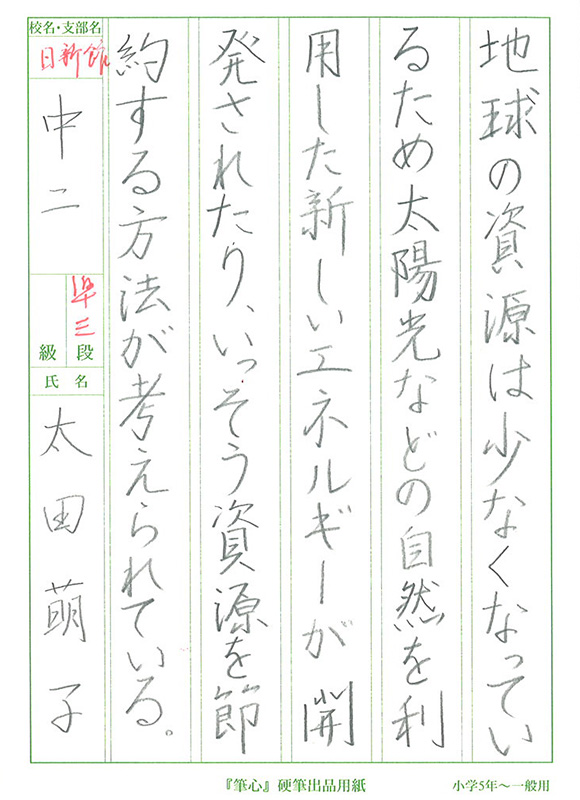 地球の資源は少なくなってい
るため太陽光などの自然を利
用した新しいエネルギーが開
発されたり、いっそう資源を節
約する方法が考えられている。
校名・支部名
日新館
中二
準三
級
段
氏名
太田萌子
『筆心』硬筆出品用紙
小学5年〜一般用